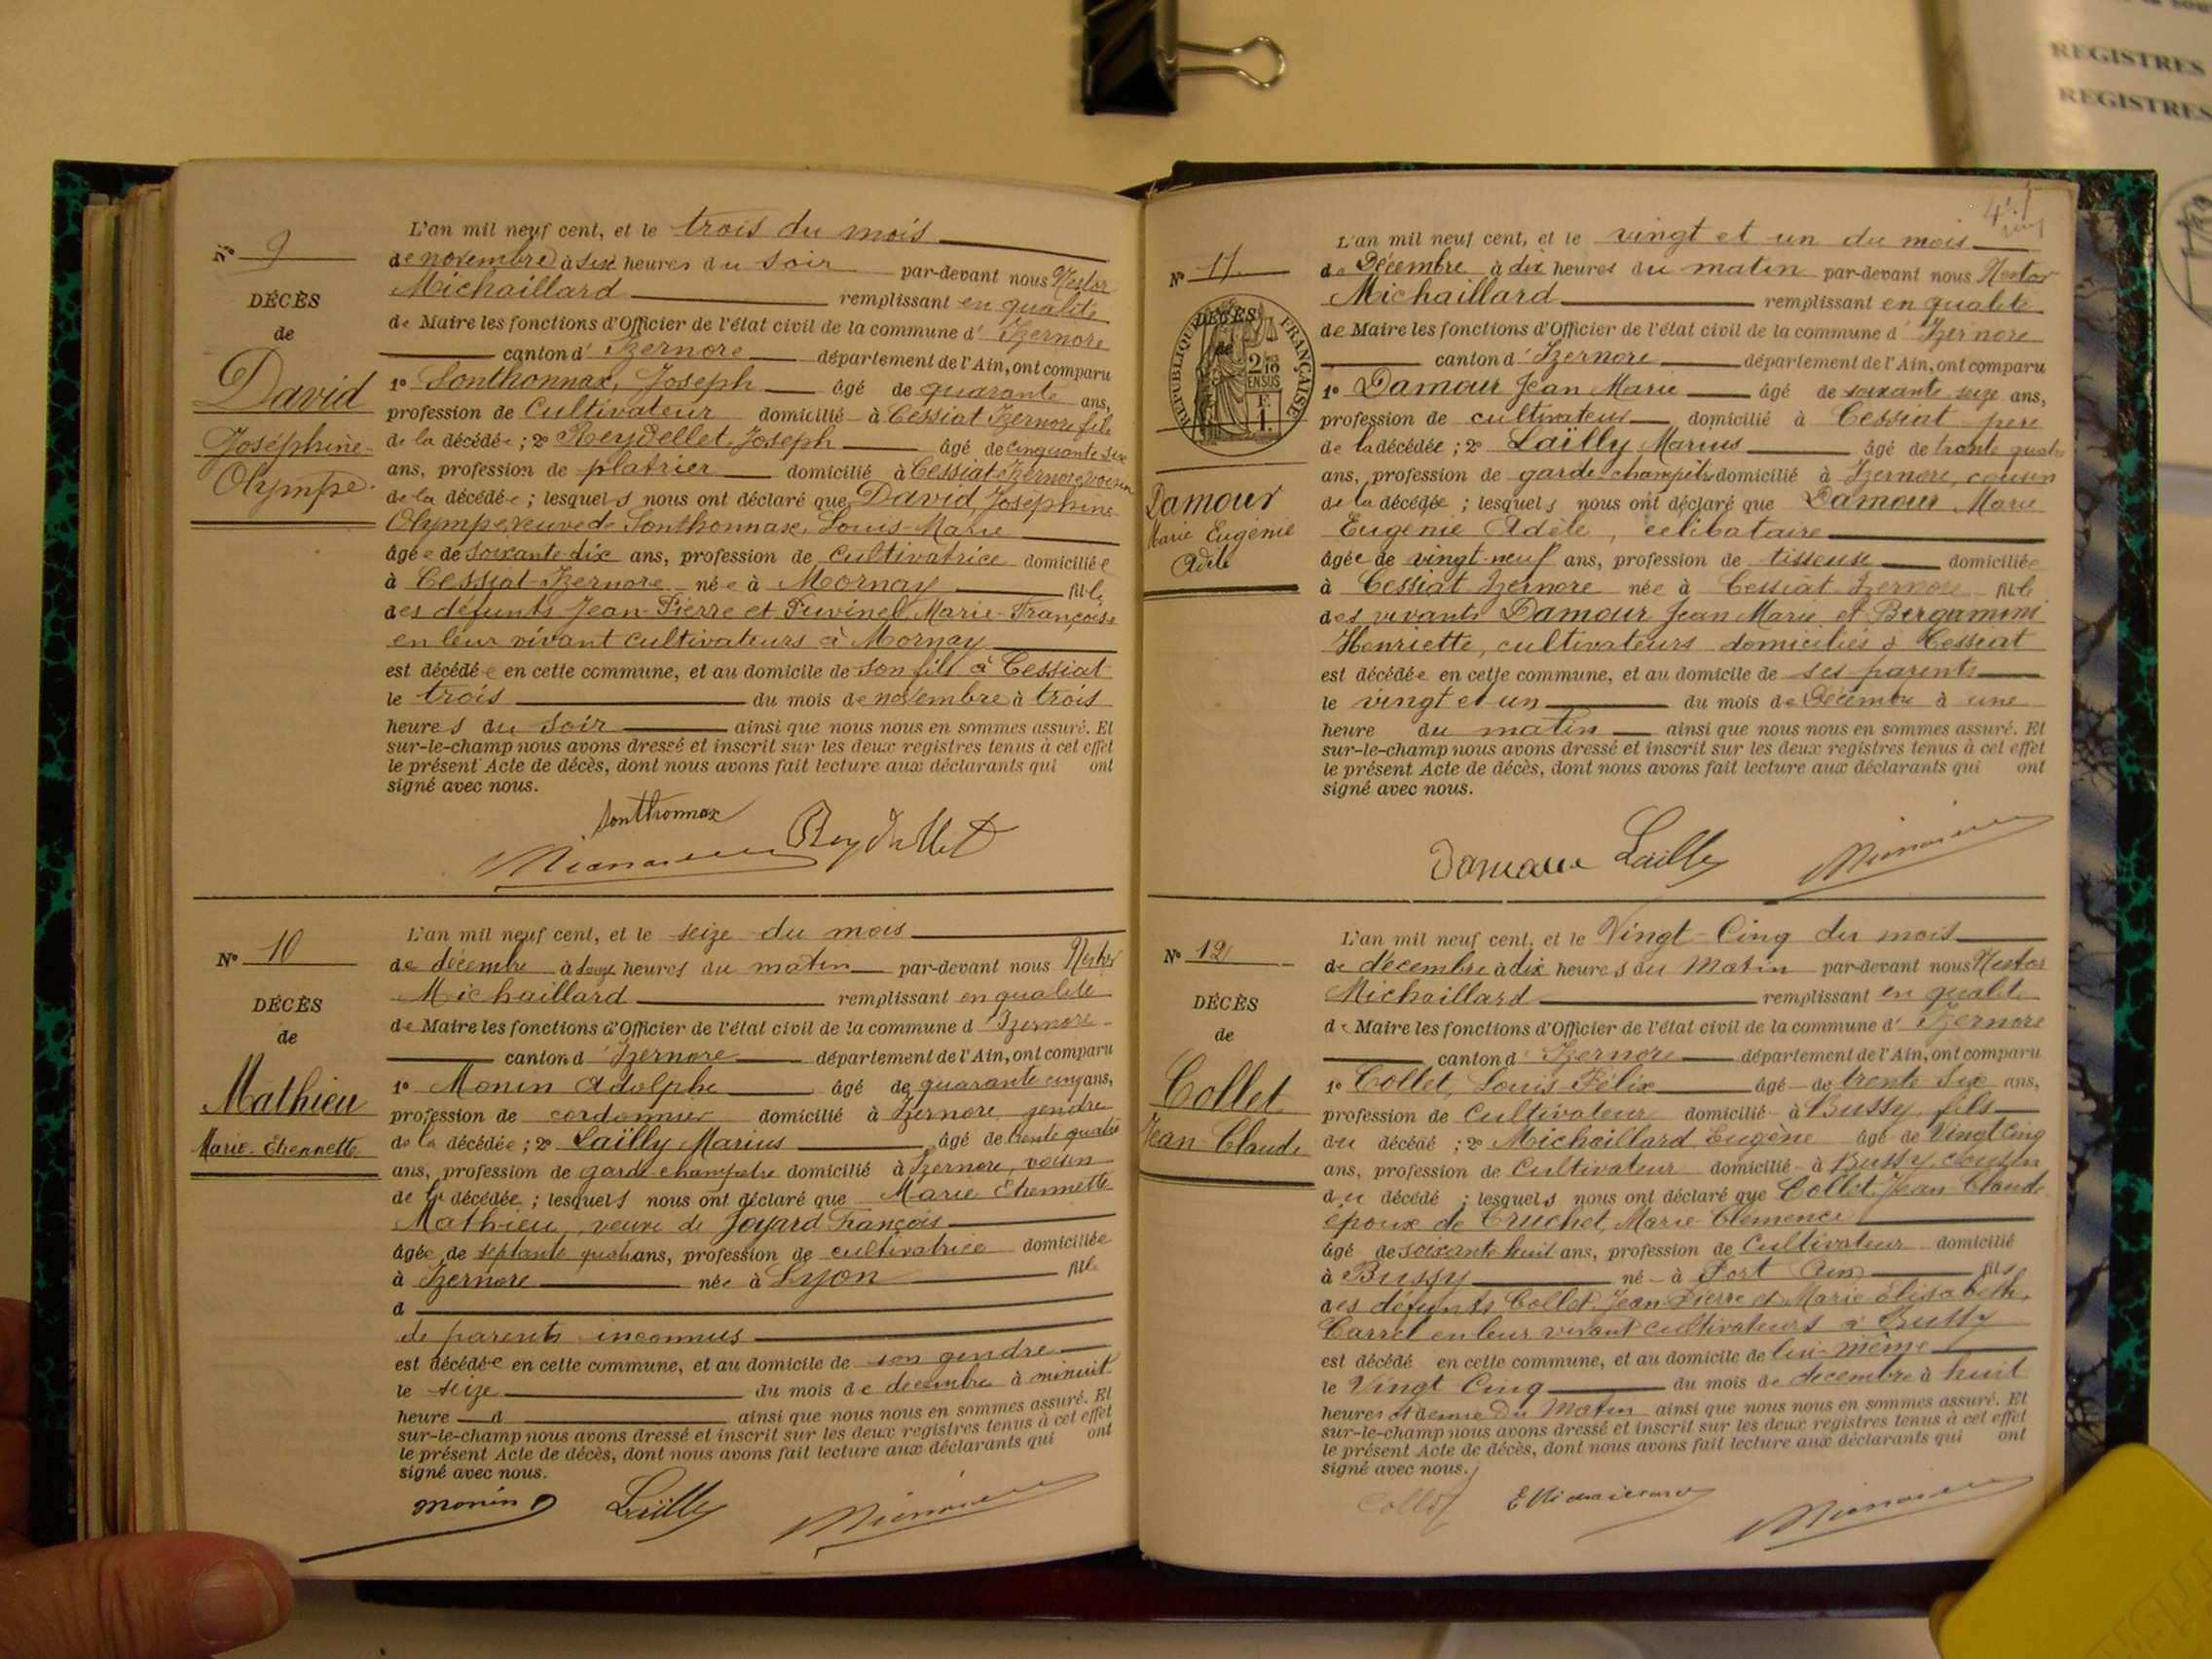 REGISTRES
REGISTRES
N° 9
DÉCÈS
de
David
Joséphine
Olympe
L'an mil neuf cent, et le trois du mois
de novembre à six heures du soir par-devant nous Nestor
Michaillard remplissant en qualité
de Maire les fonctions d'Officier de l'état civil de la commune d'Izernore
canton d'Izernore département de l'Ain, ont comparu
1° Sonthonnax, Joseph âgé de quarante ans,
profession de Cultivateur domicilié à Cessiat Izernore fils
de la décédée ; 2° Reydellet Joseph âgé de cinquante six
ans, profession de platrier domicilié à Cessiat Izernore, voisin
de la décédée ; lesquels nous ont déclaré que David, Joséphine
Olympe veuve de Sonthonnax, Louis-Marie
âgée de soixante-dix ans, profession de Cultivatrice domiciliée
à Cessiat-Izernore née à Mornay fille
des défunts Jean-Pierre et Marie-Françoise
en leur vivant cultivateurs à Mornay
est décédée en cette commune, et au domicile de son fils à Cessiat
le trois du mois de novembre à trois
heures du soir ainsi que nous nous en sommes assuré. Et
sur-le-champ nous avons dressé et inscrit sur les deux registres tenus à cet effet
le présent Acte de décès, dont nous avons fait lecture aux déclarants qui ont
signé avec nous.
Sonthonnax
Reydellet
N° 10
DÉCÈS
de
Mathieu
Marie-Etiennette
L'an mil neuf cent, et le seize du mois
de décembre à heures du matin par-devant nous Nestor
Michaillard remplissant en qualité
de Maire les fonctions d'Officier de l'état civil de la commune d'Izernore
canton d'Izernore département de l'Ain, ont comparu
1° Monin Adolphe âgé de quarante cinq ans,
profession de cordonnier domicilié à Izernore gendre
de la décédée ; 2° Laïlly Marius âgé de trente quatre
ans, profession de garde champêtre domicilié à Izernore, voisin
de la décédée ; lesquels nous ont déclaré que Marie Etiennette
Mathieu, veuve de Joyard François
âgée de septante quatre ans, profession de cultivatrice domiciliée
à Izernore née à Lyon fille
d
de parents inconnus
est décédée en cette commune, et au domicile de son gendre
le seize du mois de décembre à minuit
heure d ainsi que nous nous en sommes assuré. Et
sur-le-champ nous avons dressé et inscrit sur les deux registres tenus à cet effet
le présent Acte de décès, dont nous avons fait lecture aux déclarants qui ont
signé avec nous.
monin
Laïlly
N° 11
DÉCÈS
RÉPUBLIQUE FRANÇAISE
2/10 EN SUS
F. 1.
Damour
Marie Eugénie
Adèle
L'an mil neuf cent, et le vingt et un du mois
de Décembre à dix heures du matin par-devant nous Nestor
Michaillard remplissant en qualité
de Maire les fonctions d'Officier de l'état civil de la commune d'Izernore
canton d'Izernore département de l'Ain, ont comparu
1° Damour Jean Marie âgé de soixante seize ans,
profession de cultivateur domicilié à Cessiat père
de la décédée ; 2° Laïlly Marius âgé de trente quatre
ans, profession de garde champêtre domicilié à Izernore, cousin
de la décédée ; lesquels nous ont déclaré que Damour Marie
Eugénie Adèle, célibataire
âgée de vingt-neuf ans, profession de tisseuse domiciliée
à Cessiat Izernore née à Cessiat Izernore fille
des vivants Damour Jean Marie et Bergamini
Henriette, cultivateurs domiciliés à Cessiat
est décédée en cette commune, et au domicile de ses parents
le vingt et un du mois de Décembre à une
heure du matin ainsi que nous nous en sommes assuré. Et
sur-le-champ nous avons dressé et inscrit sur les deux registres tenus à cet effet
le présent Acte de décès, dont nous avons fait lecture aux déclarants qui ont
signé avec nous.
Damour Laïlly
N° 12
DÉCÈS
de
Collet
Jean Claude
L'an mil neuf cent, et le Vingt-Cinq du mois
de décembre à dix heures du Matin par-devant nous Nestor
Michaillard remplissant en qualité
de Maire les fonctions d'Officier de l'état civil de la commune d'Izernore
canton d'Izernore département de l'Ain, ont comparu
1° Collet, Louis-Félix âgé de trente six ans,
profession de Cultivateur domicilié à Bussy, fils
du décédé ; 2° Michaillard Eugène âgé de Vingt Cinq
ans, profession de Cultivateur domicilié à Bussy, cousin
du décédé ; lesquels nous ont déclaré que Collet Jean Claude
époux de Cruchet, Marie Clémence
âgé de soixante huit ans, profession de Cultivateur domicilié
à Bussy né à Port Ain fils
des défunts Collet Jean-Pierre et Marie Elisabeth,
Carrel en leur vivant cultivateurs à Bussy
est décédé en cette commune, et au domicile de lui-même
le Vingt Cinq du mois de decembre à huit
heures et demie Du Matin ainsi que nous nous en sommes assuré. Et
sur-le-champ nous avons dressé et inscrit sur les deux registres tenus à cet effet
le présent Acte de décès, dont nous avons fait lecture aux déclarants qui ont
signé avec nous.
Collet E Michaillard